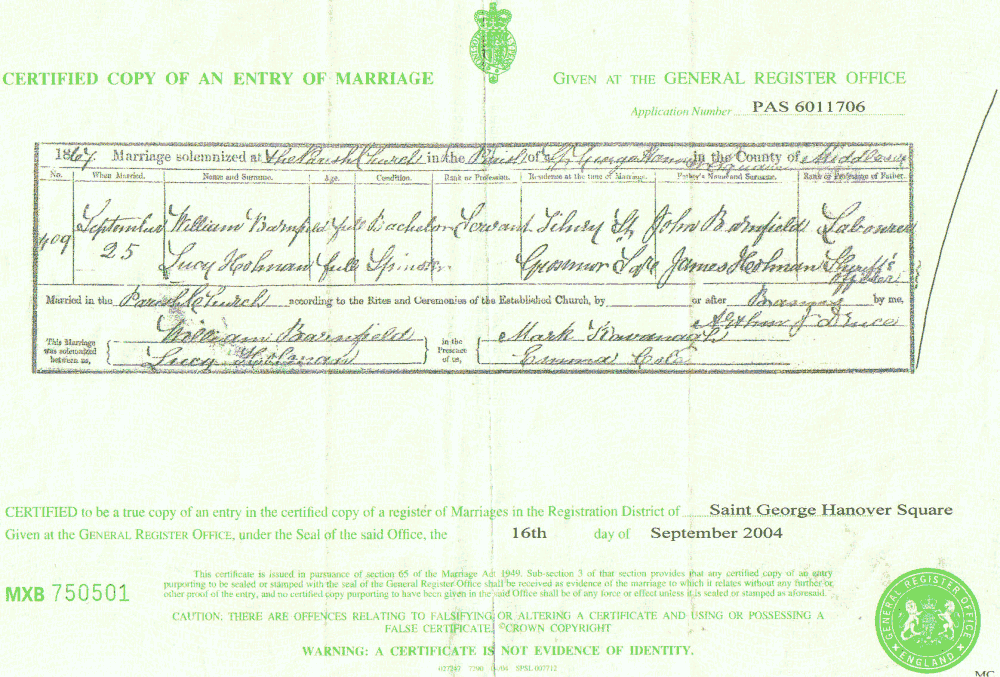 CERTIFIED COPY OF AN ENTRY OF MARRIAGE
GIVEN AT THE GENERAL REGISTER OFFICE
Application Number PAS 6011706
1867. Marriage solemnized at the Parish Church in the Parish of St George Hanover Square in the County of Middlesex
No. When Married. Name and Surname. Age. Condition. Rank or Profession. Residence at the time of Marriage. Father's Name and Surname. Rank or Profession of Father.
409 September 25 William Barnfield full Bachelor Servant Tilney St John Barnfield Labourer
Lucy Holman full Spinster Grosvenor James Holman Sheriff's Officer
Married in the Parish Church according to the Rites and Ceremonies of the Established Church, by or after Banns by me,
Arthur J Druce
This Marriage was solemnized between us, William Barnfield in the Presence of us, Mark Kavanagh
Lucy Holman Cole
CERTIFIED to be a true copy of an entry in the certified copy of a register of Marriages in the Registration District of Saint George Hanover Square
Given at the GENERAL REGISTER OFFICE, under the Seal of the said Office, the 16th day of September 2004
MXB 750501
This certificate is issued in pursuance of section 65 of the Marriage Act 1949. Sub-section 3 of that section provides that any certified copy of an entry
purporting to be sealed or stamped with the seal of the General Register Office shall be received as evidence of the marriage to which it relates without any further or
other proof of the entry, and no certified copy purporting to have been given in the said Office shall be of any force or effect unless it is sealed or stamped as aforesaid.
CAUTION: THERE ARE OFFENCES RELATING TO FALSIFYING OR ALTERING A CERTIFICATE AND USING OR POSSESSING A
FALSE CERTIFICATE. ©CROWN COPYRIGHT
WARNING: A CERTIFICATE IS NOT EVIDENCE OF IDENTITY.
GENERAL REGISTER OFFICE
ENGLAND
MC